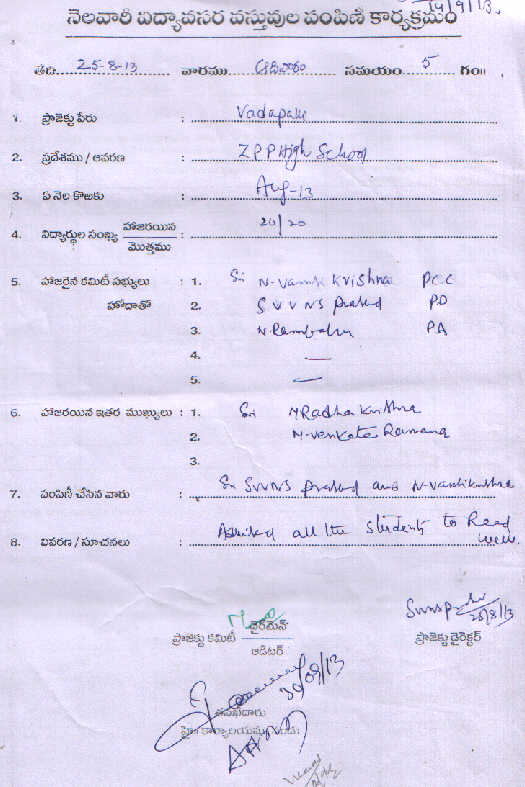 24/9/13.
నెలవారీ విద్యావసర వస్తువుల పంపిణీ కార్యక్రమం
తేది 25-8-13 వారము ఆదివారం సమయం 5 గం॥
1. ప్రాజెక్టు పేరు : Vadapalli
2. ప్రదేశము / ఆవరణ : Z.P.P High School
3. ఏ నెల కొఱకు : Aug-13
4. విద్యార్థుల సంఖ్య హాజరయిన మొత్తము : 20/20
5. హాజరైన కమిటీ సభ్యులు : 1. Sri N. Vamsi Krishna PCC
హోదాతో 2. S V V N S Prasad PD
3. N. Rambabu PA
4. —
5. —
6. హాజరయిన ఇతర ముఖ్యులు : 1. Sri M Radha Krishna
2. N. Venkata Ramana
3.
7. పంపిణీ చేసిన వారు : Sri SVVNS Prasad and N. Vamsi Krishna
8. వివరణ / సూచనలు : Advised all the students to Read well.
25/8/13
ప్రాజెక్టు కమిటీ ఛైర్మెన్
ఆడిటర్
ప్రాజెక్టు డైరెక్టర్
30/09/13
తనిఖీదారు